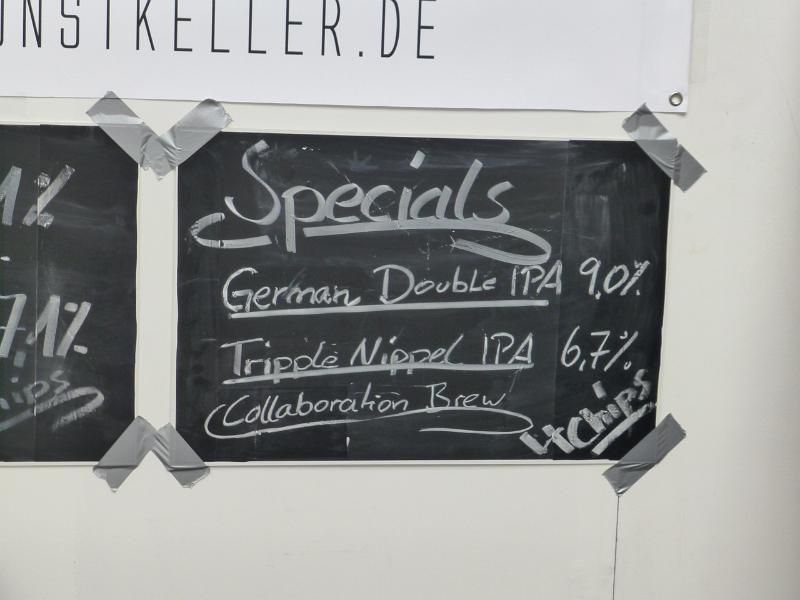 UNSTKELLER.DE
1%
71%
hips
Specials
German Double IPA 9,0%
Tripple Nippel IPA 6,7%
Collaboration Brew
4 chips